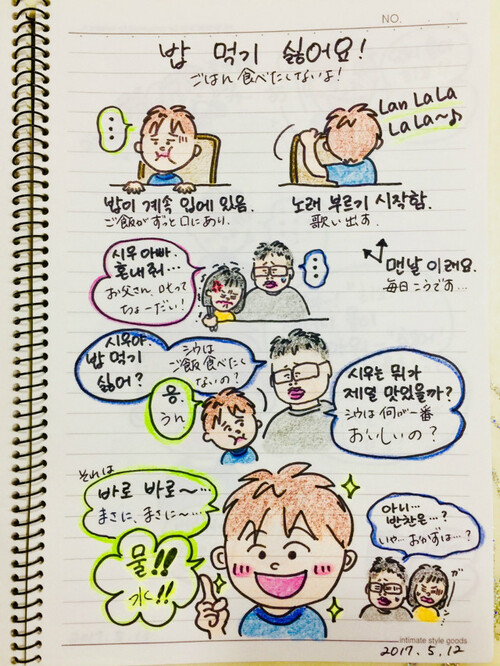 NO.
밥 먹기 싫어요!
ごはん食べたくないよ!
...
Lan LaLa
LaLa~♪
밥이 계속 입에 있음.
ご飯がずっと口にあり.
노래 부르기 시작함.
歌い出す.
시우 아빠.
혼내줘...
お父さん、叱って
ちょーだい!
...
맨날 이래요.
毎日こうです...
시우야
밥 먹기
싫어?
シウは
ご飯食べたく
ないの?
응.
うん
시우는 뭐가
제일 맛있을까?
シウは何が一番
おいしいの?
それは
바로 바로~...
まさに、まさに~...
물!!
水!!
아니...
반찬은...?
いや...おかずは...?
ガーン
intimate style goods
2017.5.12